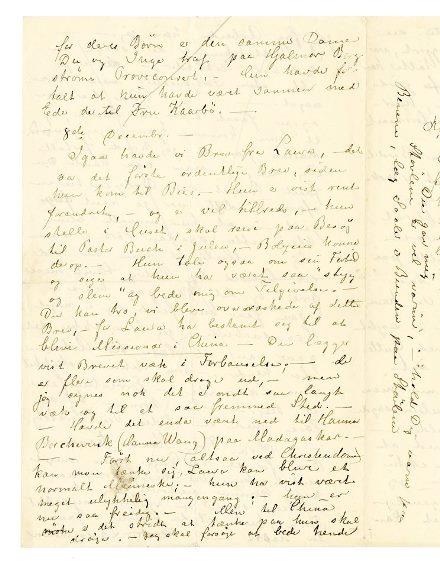 for deres Børn er den samme Dame
Du og Inga traf paa Hjalmar Borg
strøms Prøveconsert. - Hun havde for
talt at hun havde vært sammen med
Eder de til Fru Kaarbø. -
- 8de December. -
Igaar havde vi Brev fra Laura, - det
var det første ordentlige Brev, siden
hun kom til Bies. Hun er vist rent
forandret, - og er vel tilfreds, - hun
steller i Huset, skal reise paa Besøg
til Pastor Buch i Julen, -
derop. - Hun taler ogsaa om sin Fortid
og siger at hun har været saa "styg
og slem" og beder mig om Tilgivelse. -
Du kan tro, vi bleve overraskede af dette
Brev, - for Laura har bestemt sig til at
blive Missionær i China - Du lægger
vist Brevet væk i Forbauselse. - de
er flere som skal drage ud, - men
jeg synes nok det er ondt saa langt
væk og til et saa fremmed Sted. -
Havde det enda vært ned til Hanna
Borchgrevink (Hanna Wang) paa Madagaskar. -
- Først nu (altsaa ved Christendom)
kan man tænke sig, Laura kan blive et
normalt Menneske. - hun har vist vært
meget ulykkelig mangengang; - hun er
nu saa freidig. - Men til China
det strider at tænke paa hun skal
drage. - Jeg skal forsøge at bede hende
Du gaa meg
Støvlerne er vel varme, - Hold Dig varm paa
Benene, læg Saaler i Bunden paa Støvlerne